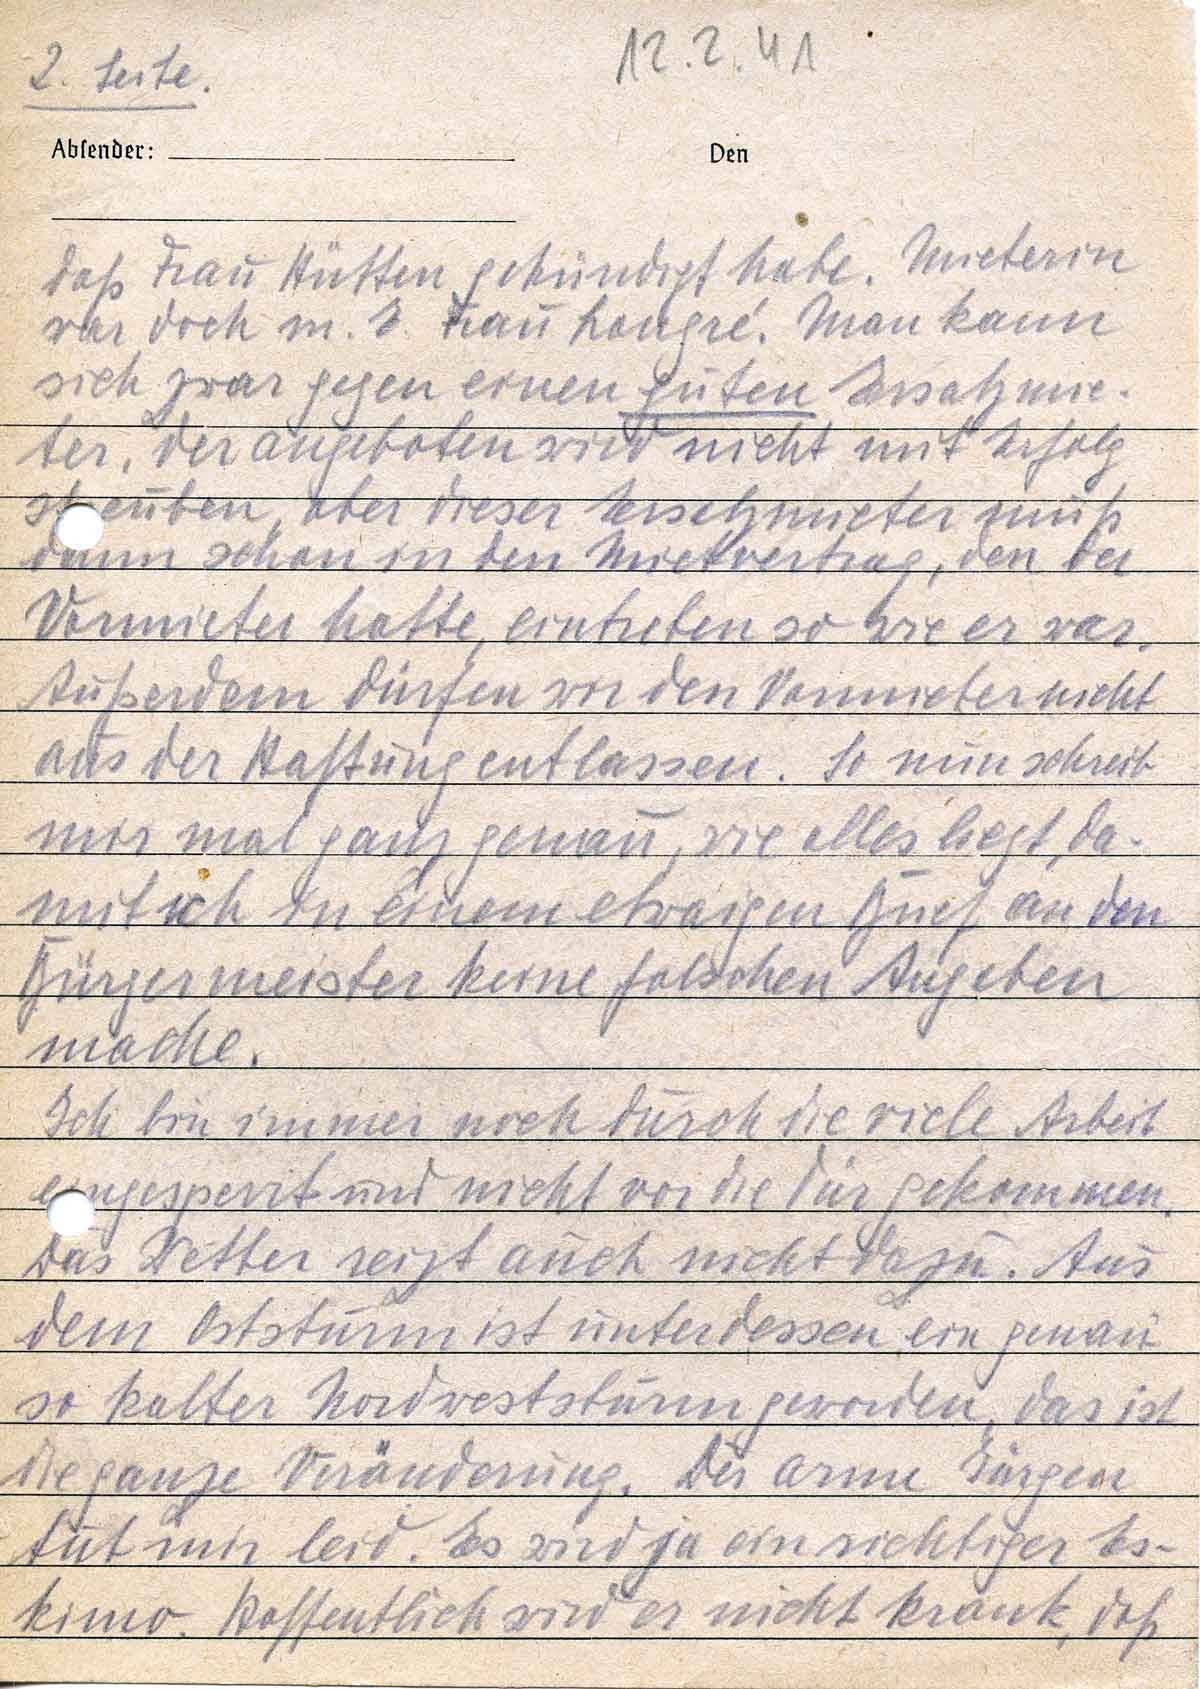 12.2.41
2. Seite.
Absender:
Den
daß Frau Hütten gekündigt habe. Mieterin
war doch m. E. Frau Longré. Man kann
sich zwar gegen einen guten Ersatzmie-
ter, der angeboten wird nicht mit Erfolg
sträuben, aber dieser Ersatzmieter muß
dann schon in den Mietvertrag, den der
Vormieter hatte, eintreten so wie er war.
Außerdem dürfen wir den Vormieter nicht
aus der Haftung entlassen. So nun schreib
mir mal ganz genau, wie alles liegt, da-
mit ich in einem etwaigen Brief an den
Bürgermeister keine falschen Angeben
mache.
Ich bin immer noch durch die viele Arbeit
eingesperrt und nicht vor die Tür gekommen.
Das Wetter reizt auch nicht dazu. Aus
dem Oststurm ist unterdessen ein genau
so kalter Nordweststurm geworden, das ist
die ganze Veränderung. Der arme Jürgen
tut mir leid. Es wird ja ein richtiger Es-
kimo. Hoffentlich wird er nicht krank, daß